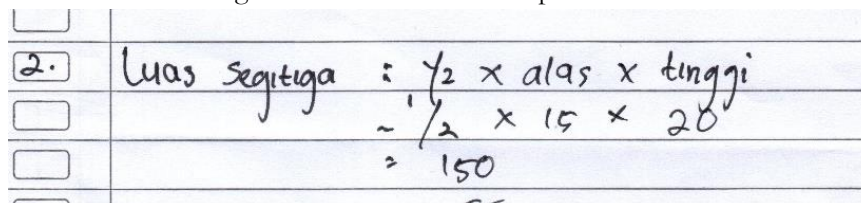 2. Luas segitiga : 1/2 x alas x tinggi
= 1/2 x 15 x 20
= 150